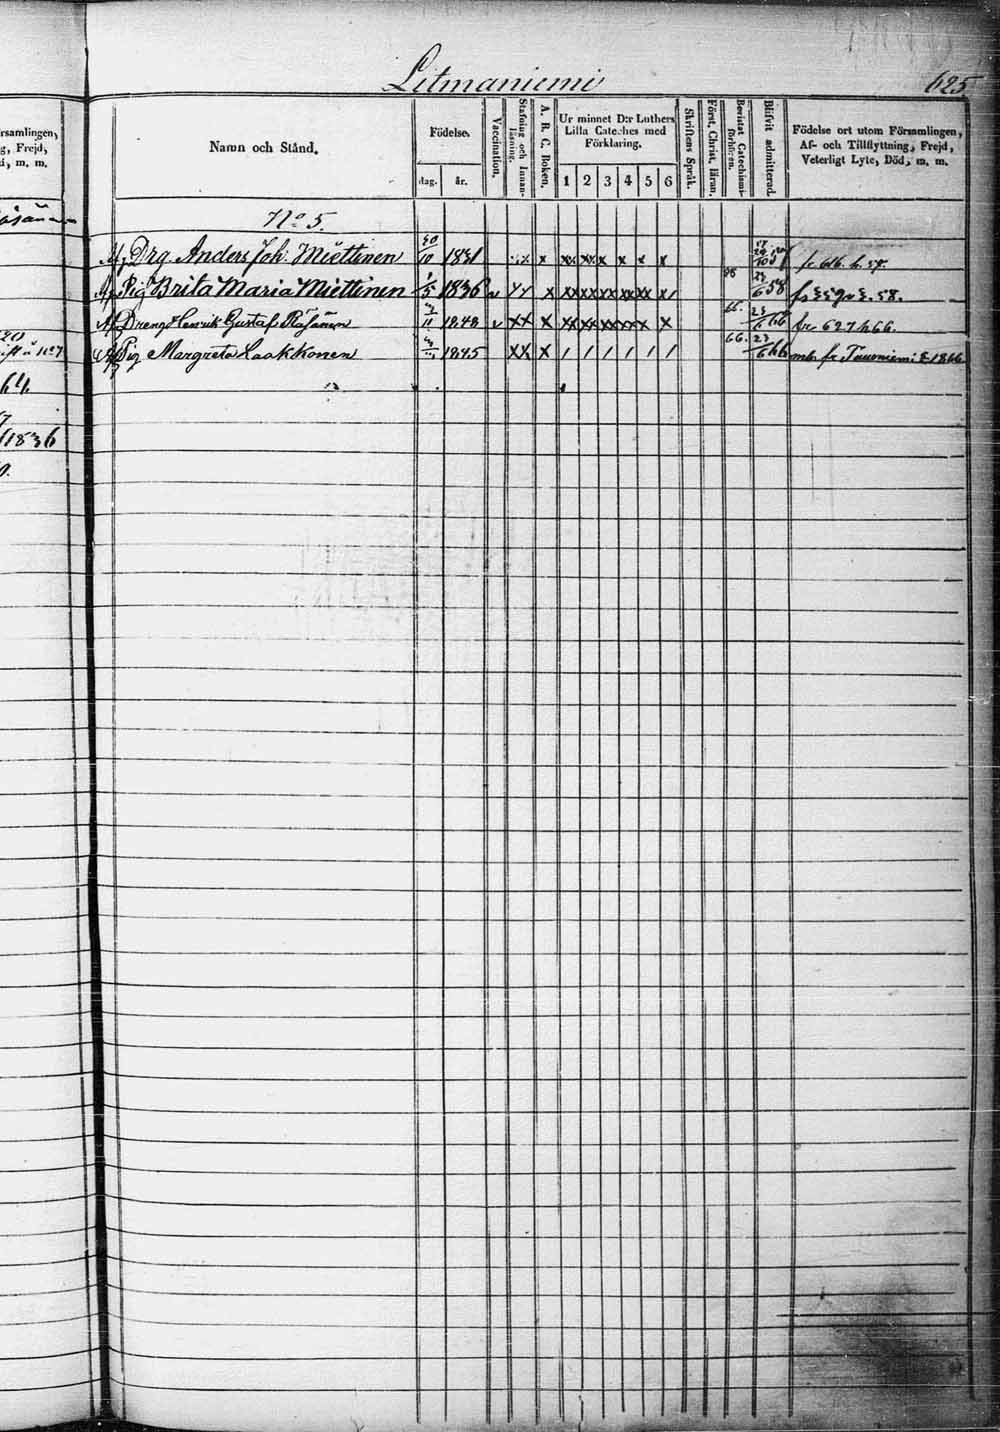 Litmaniemi
625.
rsamlingen,
g, Frejd,
m. m.
Namn och Stånd.
Födelse.
dag. år.
Vaccination.
Stafning och Innanläsning.
A. B. C. Boken.
Ur minnet D:r Luthers Lilla Cateches med Förklaring.
1 2 3 4 5 6
Skriftens Språk.
Först. Christ. läran.
Bevistat Catechismiförhören.
Blifvit admitterad.
Födelse ort utom Församlingen,
Af- och Tillflyttning, Frejd,
Veterligt Lyte, Död, m. m.
No 5.
Drg. Anders Joh. Miettinen 30/10 1831 x xx xx x x x x fr 616. h. 57.
Pig Brita Maria Miettinen 1/5 1836 x xx xx xx xx xx x/ 58 23/6 58 58.
Dreng Henrik Gustaf Räsänen 1848 v xx x xx xx xx xx x x 66. 23/6 66 fr 627 h 66.
Pig Margreta Laakkonen 1845 xx x / / / / / / 66. 23/6 66 mb. fr 1866
20
No 7
64.
1836